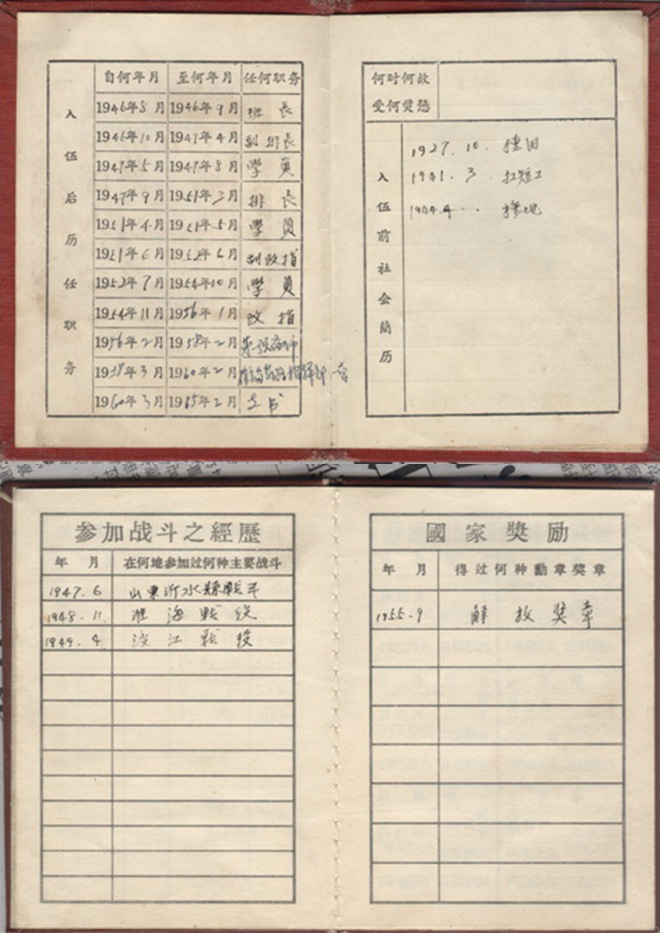 自何年月 至何年月 任何职务
入伍后历任职务
1946年8月 1946年9月 班长
1946年10月 1947年4月 副排长
1947年5月 1947年8月 學員
1947年9月 1951年3月 排长
1951年4月 1951年5月 學員
1951年6月 1952年6月 副政指
1952年7月 1954年10月 學員
1954年11月 1956年1月 政指
1956年2月 1958年2月
1958年3月 1960年2月
1960年3月 1965年2月
何时何故
受何奖惩
入伍前社会简历
1927.10. 種田
1941.3 打短工
1944.4 . . 種地
参加战斗之經歷
年 月 在何地参加过何种主要战斗
1947.6 山東沂水縣戰斗
1948.11 淮海戰役
1949.4 渡江戰役
國家獎励
年 月 得过何种勳章奖章
1955.9 解放奬章